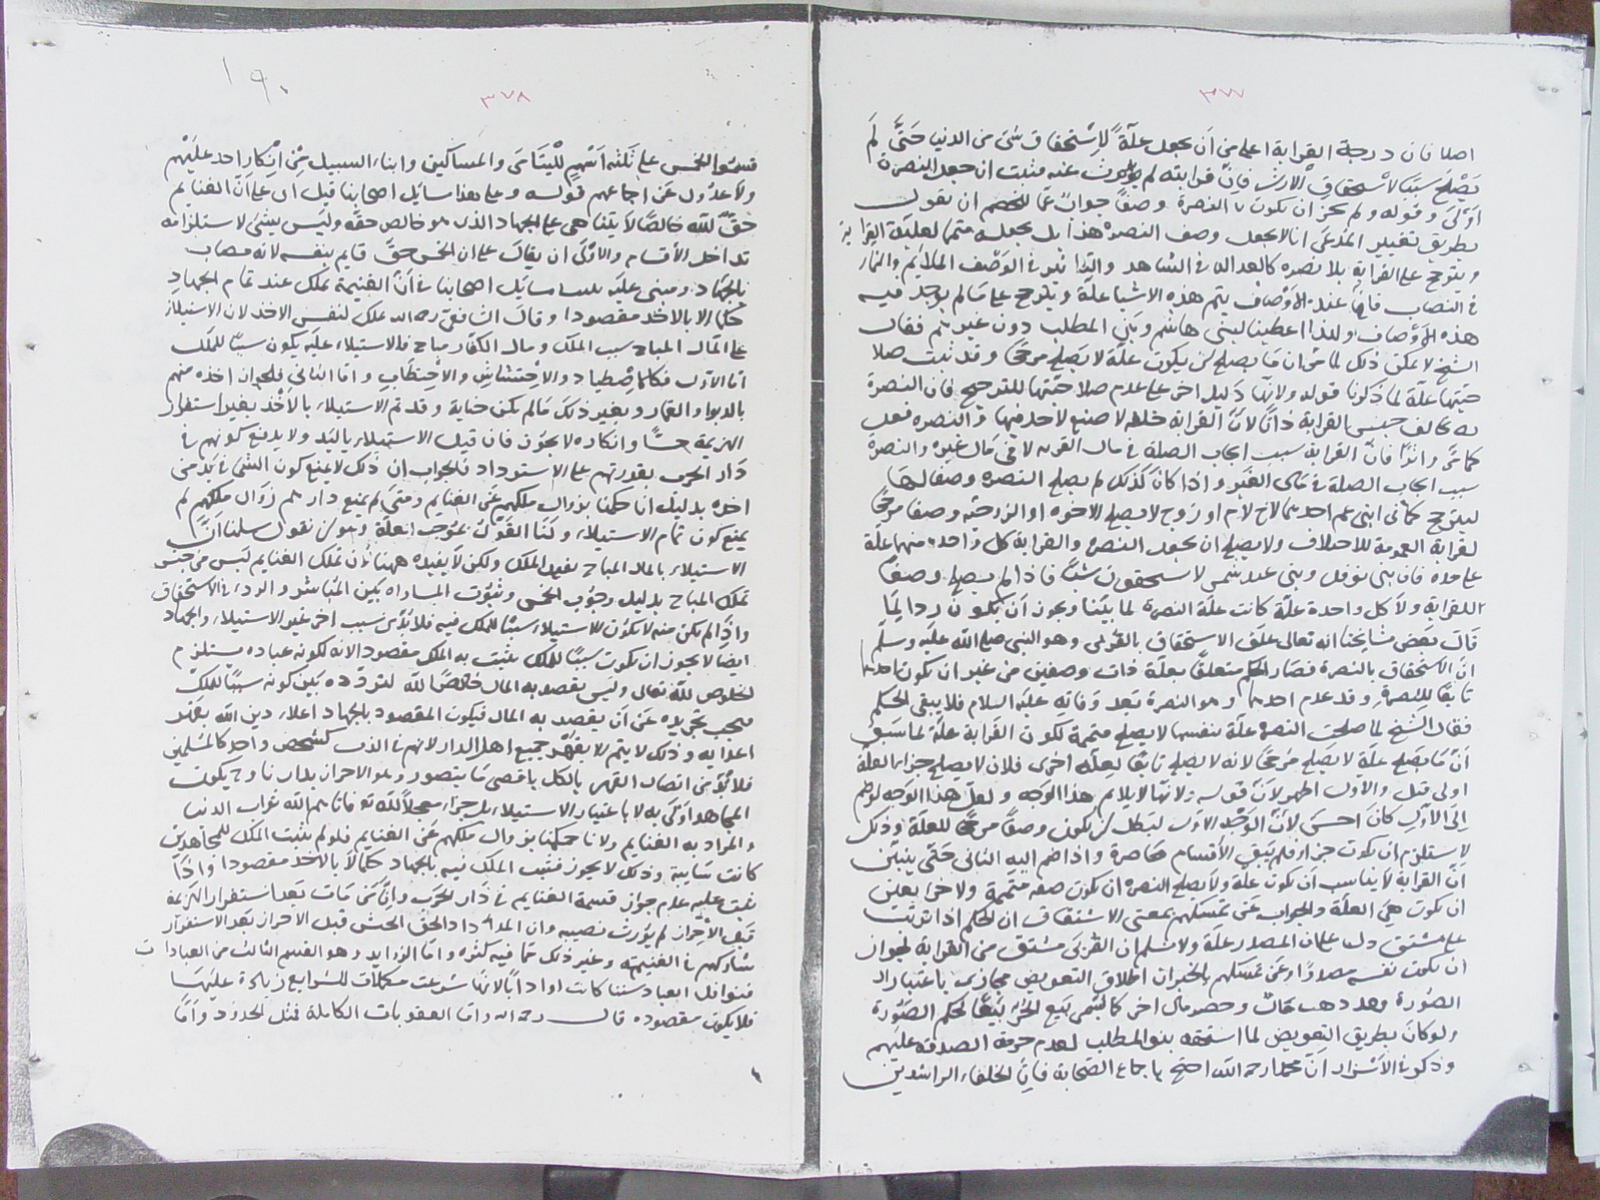 ٣٧٧
اصلا فان درجة القرابة اعلى من ان يجعل علة لاستحقاق شئ من الدنيا حتى لم
يصلح سببا لاستحقاق الارث فان قرابته لم يورث عنه فثبت ان جعل النصرة
اولى وقوله ولم يجز ان تكون النصرة وصفا جواب عما للخصم ان يقول
بطريق تغيير المدعى انا لا نجعل وصف النصرة هذا بل نجعله متمما لعلية القرابة
ويترجح على القرابة بلا نصرة كالعدالة في الشاهد والتأثير في الوصف الملائم والنماء
في النصاب فان عند الاوصاف يتم هذه الاشيا علة ويترجح على مالم يوجد فيه
هذه الاوصاف ولهذا اعطينا لبنى هاشم وبنى المطلب دون غيرهم فقال
الشيخ لا يمكن ذلك لما مر ان ما يصلح ان يكون علة لا يصلح مرجحا وقد ثبت صلا
حيتها علة لما ذكرنا قوله ولانها دليل اخر على عدم صلاحيتها للترجيح فان النصرة
يخالف جنس القرابة ذاتا لان القرابة خلقة لا صنع لاحد فيها والنصرة فعل
كما مر واثرا فان القرابة سبب ايجاب الصلة في مال القريب لا في مال غيره والنصرة
سبب ايجاب الصلة في مال الغير واذا كان كذلك لم يصلح النصرة وصفا لها
ليترجح كما في ابنى عم احدهما اخ لام او زوج لا يصلح الاخوة او الزوجية وصفا مرجحا
لقرابة العمومة للاختلاف ولا يصلح ان يجعل النصرة والقرابة كل واحدة منهما علة
على حدة فان بنى نوفل وبنى عبد شمس لا يستحقون شيئا فاذا لم يصلح وصفا
للقرابة ولا كل واحدة علة كانت علة النصرة لما بينا ويجوز ان يكون ردا لما
قال بعض مشايخنا انه تعالى علق الاستحقاق بالقربى وهو النبى صلى الله عليه وسلم
ان الاستحقاق بالنصرة فصار الحكم متعلقا بعلة ذات وصفين من غير ان يكون احدهما
تابعا للنصرة وقد عدم احدهما وهو النصرة بعد وفاته عليه السلام فلا يبقى الحكم
فقال الشيخ لما صلحت النصرة علة بنفسها لا يصلح متممة لكون القرابة علة لما سبق
ان ما يصلح علة لا يصلح مرجحا لانه لا يصلح تابعا لعلة اخرى فلان لا يصلح جزءا لعلة
اولى قيل والاول اظهر لان قوله ولانها لا يلائم هذا الوجه ولعل هذا الوجه لو ضم
الى الاول كان احسن لان الوجه الاول لبطل ان يكون وصفا مرجحا للعلة وذلك
لا يستلزم ان يكون جزءا فلم يبق الاقسام حاصرة واذا ضم اليه الثانى حتى يتبين
ان القرابة لا يناسب ان يكون علة ولا يصلح النصرة ان يكون صفة متممة ولا جزءا يعنى
ان يكون هى العلة والجواب عن تمسكهم بمعنى الاشتقاق ان الحكم اذا ترتب
على مشتق دل على ان المصدر علة ولا نسلم ان القربى مشتق من القرابة لجواز
ان يكون نفسه مصدرا وعن تمسكهم بالخبر ان اطلاق التعويض مجازى باعتبار ان
الصورة بعد ذهب مال وحصر مال اخر كما يسمى بيع الحر بيعا لحكم الصورة
ولو كان بطريق التعويض لما استحقه بنو المطلب لعدم حرمة الصدقة عليهم
وذكر في الاسرار ان محمدا رحمه الله احتج باجماع الصحابة فان الخلفاء الراشدين
١٩٠
٣٧٨
قسموا الخمس على ثلثة اسهم لليتامى والمساكين وابناء السبيل من انكار احد عليهم
ولا عدول عن اجماعهم قوله وعلى هذا مسائل اصحابنا قيل اى على ان الغنايم
حق لله خالصا لا يتناهى على الجهاد الذى هو خالص حقه وليس بشئ لاستلزامه
تداخل الاقسام والاولى ان يقال على ان الخمس حق قايم بنفسه لانه مصاب
بالجهاد ومبنى عليه مسائل اصحابنا في ان الغنيمة تملك عند تمام الجهاد
حكما لا بالاخذ مقصودا وقال الشافعى رحمه الله تملك لنفس الاخذ لان الاستيلاء
على المال المباح سبب الملك ومال الكفار مباح فالاستيلاء عليه يكون سببا للملك
اما الاول فكالاصطياد والاحتشاش والاحتطاب واما الثانى فلجواز اخذه منهم
بالربوا والقمار وبغير ذلك مالم يكن خيانة وقد تم الاستيلاء بالاخذ بغير استقرار
الهزيمة حسا وانكاره لا يجوز فان قيل الاستيلاء باليد ولا يد مع كونهم في
دار الحرب بقدرتهم على الاسترداد فالجواب ان ذلك لا يمنع كون الشئ في يد من
اخذه بدليل انا حكمنا بزوال ملكهم عن الغنايم ومتى لم يمنع دارهم زوال ملكهم لم
يمنع كون تمام الاستيلاء ولنا القول بموجب العلة وهو ان نقول سلمنا ان
الاستيلاء بالمال المباح يفيد الملك ولكن لا يفيده ههنا لان تملك الغنايم ليس من جنس
تملك المباح بدليل وجوب الخمس وثبوت المساواة بين المباشر والردء في الاستحقاق
واذا لم يكن منه لا يكون الاستيلاء سببا للملك فيه فلا بد من سبب اخر غير الاستيلاء والجهاد
ايضا لا يجوز ان يكون سببا للملك يثبت به الملك مقصودا لانه لكونه عبادة يستلزم
الخلوص لله تعالى وليس يقصد به المال خالصا لله لتردده بين كونه سببا للملك
فيجب تجريده عن ان يقصد به المال فيكون المقصود بالجهاد اعلاء دين الله بقهر
اعدائه وذلك لا يتم الا بقهر جميع اهل الدار لانهم في الذب كشخص واحد كالمسلمين
فلا بد من اتصال القهر بالكل باقصى ما يتصور وهو الاحراز بدارنا وح يكون
المجاهد اولى به لا باعتبار الاستيلاء بل جزاء معجلا لله تع فاتاهم الله ثواب الدنيا
والمراد به الغنايم ولانا حكمنا بزوال ملكهم عن الغنايم فلو لم يثبت الملك للمجاهدين
كانت سايبة وذلك لا يجوز فثبت الملك فيه بالجهاد حكما لا بالاخذ مقصودا واذا
ثبت عليه عدم جواز قسمة الغنايم في دار الحرب وان من مات بعد استقرار الهزيمة
قبل الاحراز لم يورث نصيبه وان المدد اذا لحق الجيش قبل الاحراز بعد الاستقرار
شاركهم في الغنيمة وغير ذلك مما فيه كثرة واما الزوايد وهو القسم الثالث من العبادات
فنوافل العبادات وسننها كانت او ادابا لانها شرعت مكملات للشرايع زيادة عليها
فلا يكون مقصودة قال رحمه الله واما العقوبات الكاملة فمثل الحدود واما